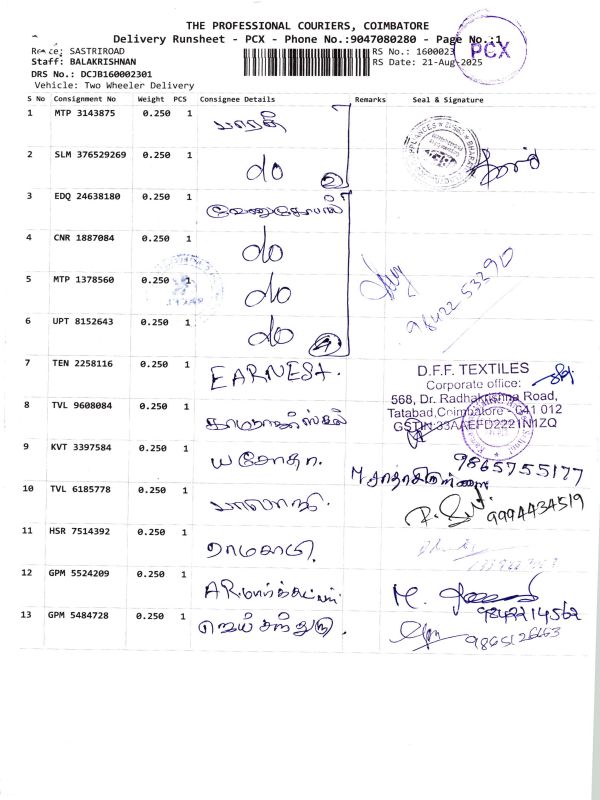 THE PROFESSIONAL COURIERS, COIMBATORE
Delivery Runsheet - PCX - Phone No.:9047080280 - Page No.:1
PCX
SASTRIROAD
RS No.: 1600023
Staff: BALAKRISHNAN
RS Date: 21-Aug-2025
DRS No.: DCJB160002301
Vehicle: Two Wheeler Delivery
S No Consignment No Weight PCS Consignee Details Remarks Seal & Signature
1 MTP 3143875 0.250 1 பாரதி
2 SLM 376529269 0.250 1 do 2
3 EDQ 24638180 0.250 1 வேணுகோபால்
4 CNR 1887084 0.250 1 do
5 MTP 1378560 0.250 1 do
98422 53290
6 UPT 8152643 0.250 1 do 4
7 TEN 2258116 0.250 1 EARNEST.
D.F.F. TEXTILES
Corporate office:
568, Dr. Radhakrishna Road,
Tatabad,Coimbatore - 641 012
GSTIN:33AAEFD2221N1ZQ
8 TVL 9608084 0.250 1
9 KVT 3397584 0.250 1 யசோதா.
9865755177
10 TVL 6185778 0.250 1
9994434519
11 HSR 7514392 0.250 1
12 GPM 5524209 0.250 1
9842214562
13 GPM 5484728 0.250 1